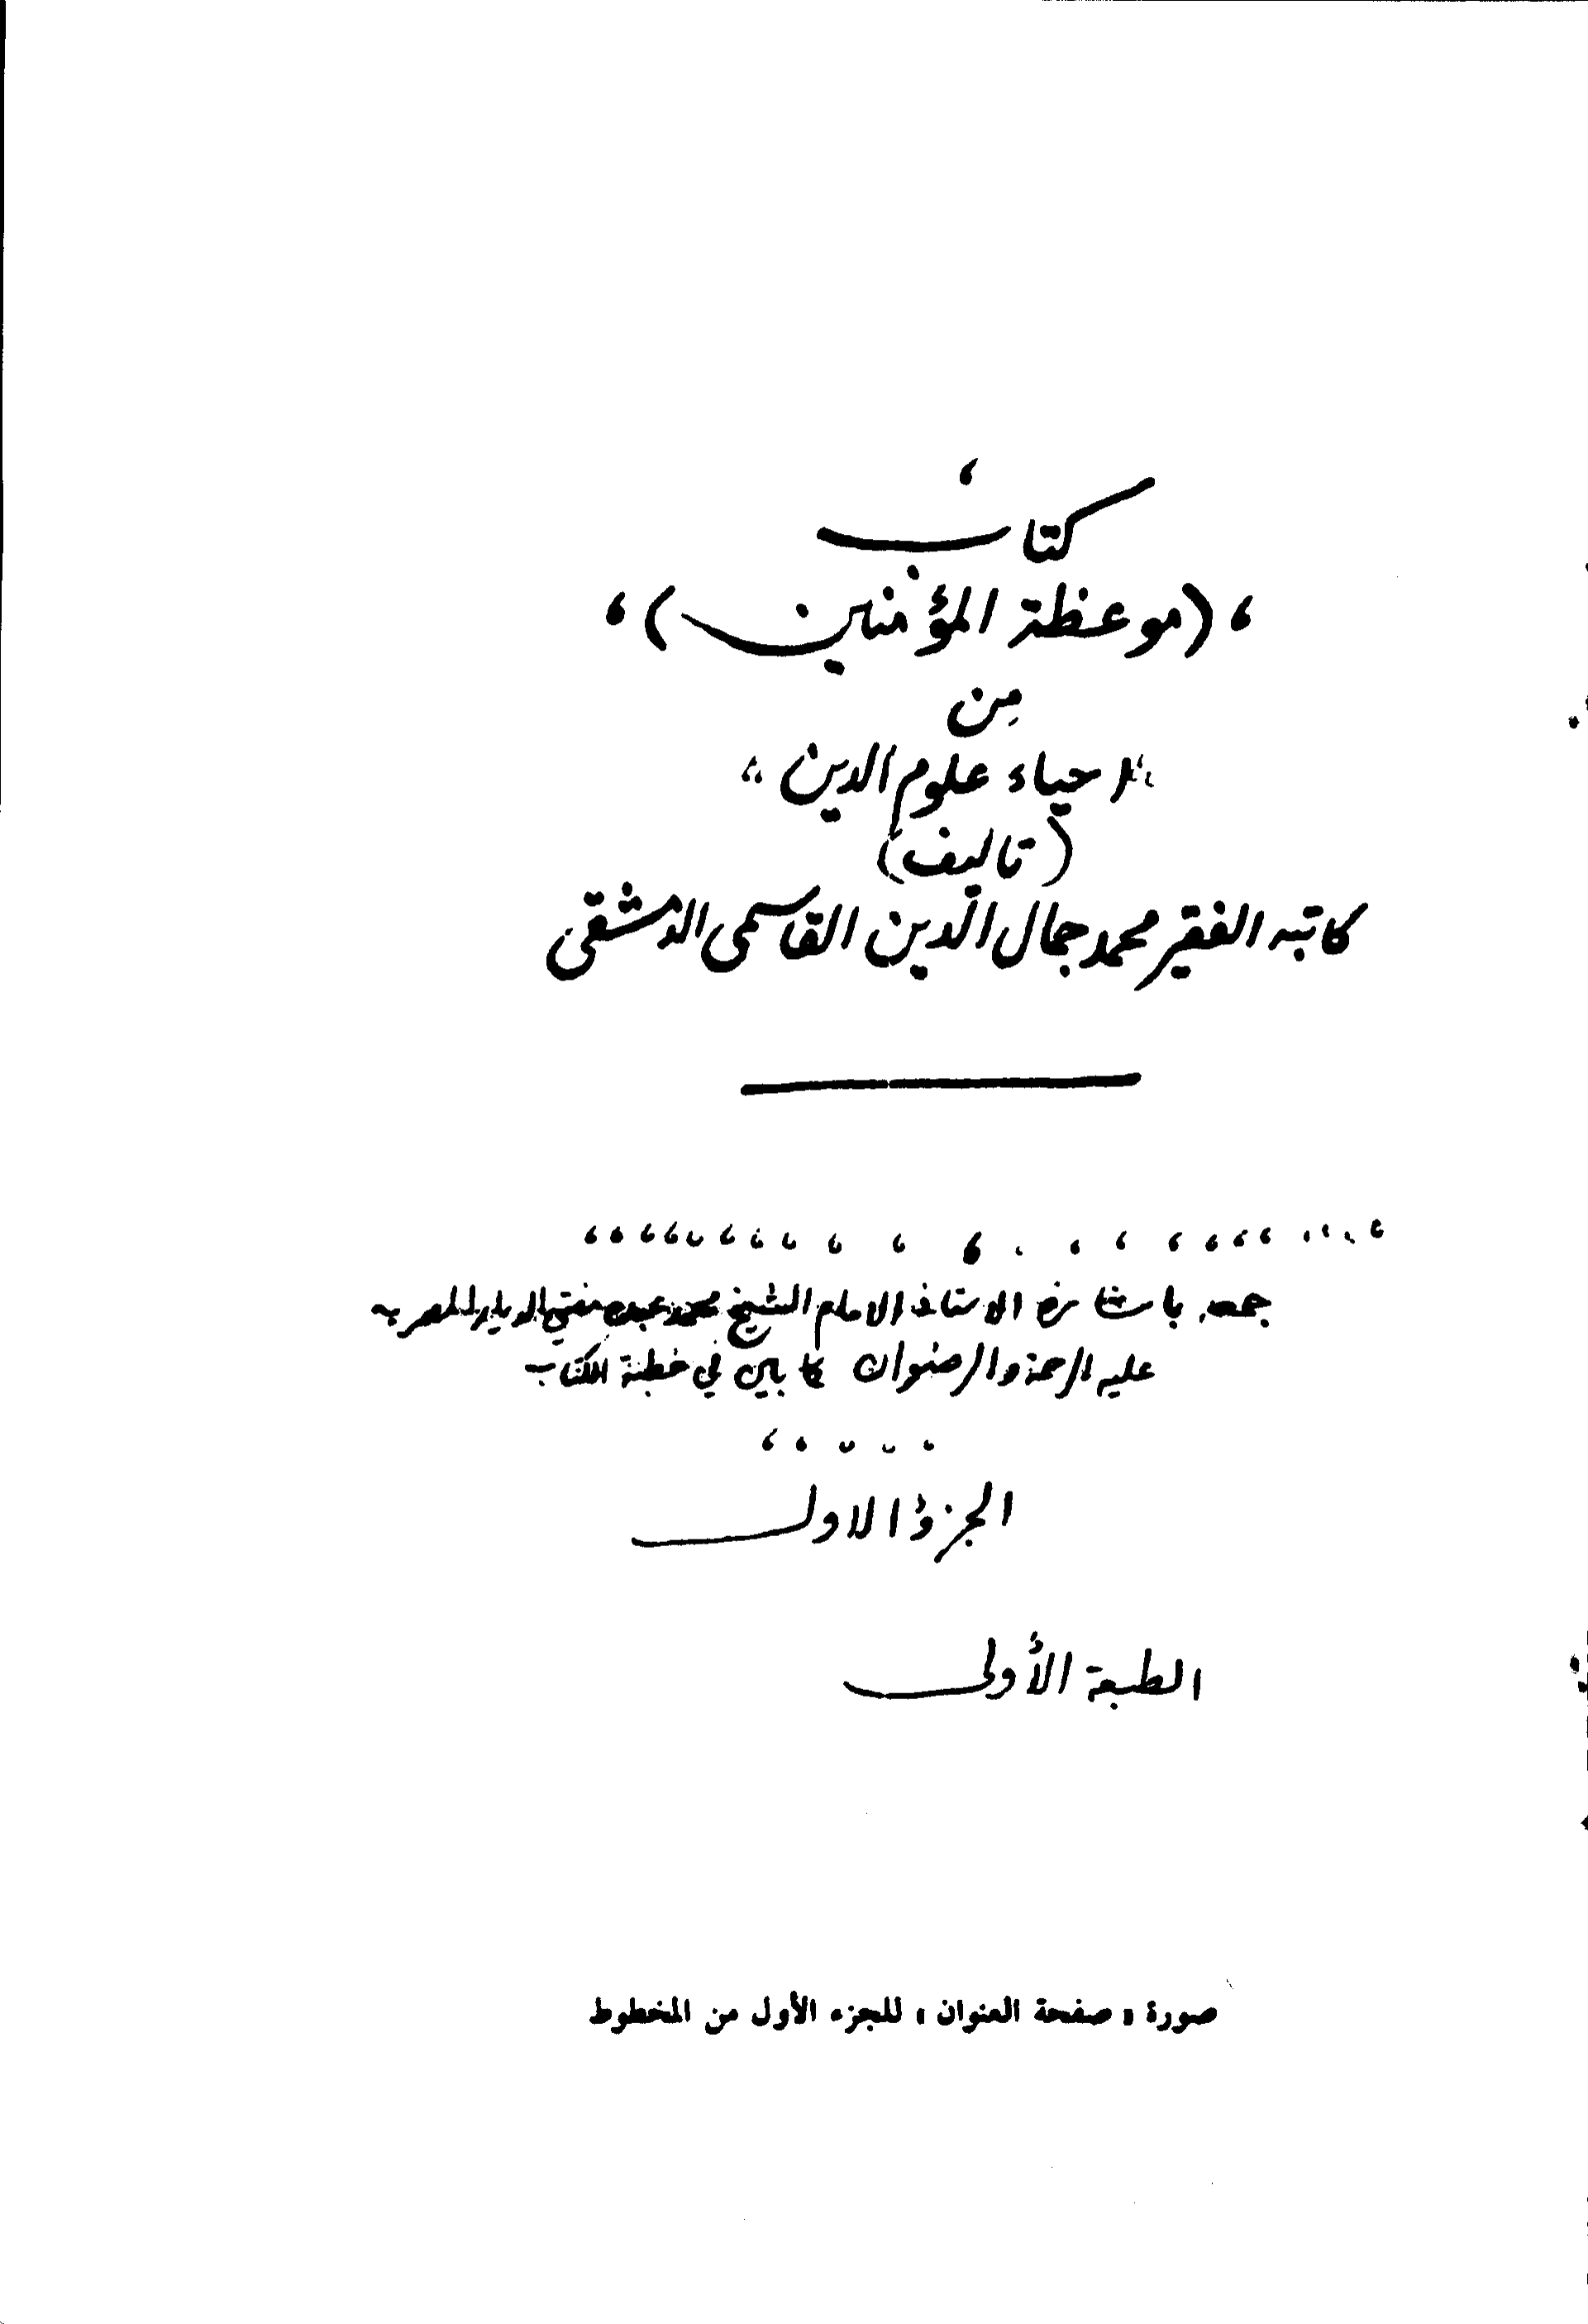 كتاب
(موعظة المؤمنين)
مِن
"احياء علوم الدين"
(تاليف)
كاتبه الفقير محمد جمال الدين القاسمى الدمشقى
جمعه باشارة الاستاذ الامام الشيخ محمد عبده مفتي الديار المصريه
عليه الرحمة والرضوان كما بين في خطبة الكتاب
الجزؤ الاول
الطبعة الأولى
صورة « صفحة العنوان » للجزء الأول من المخطوط